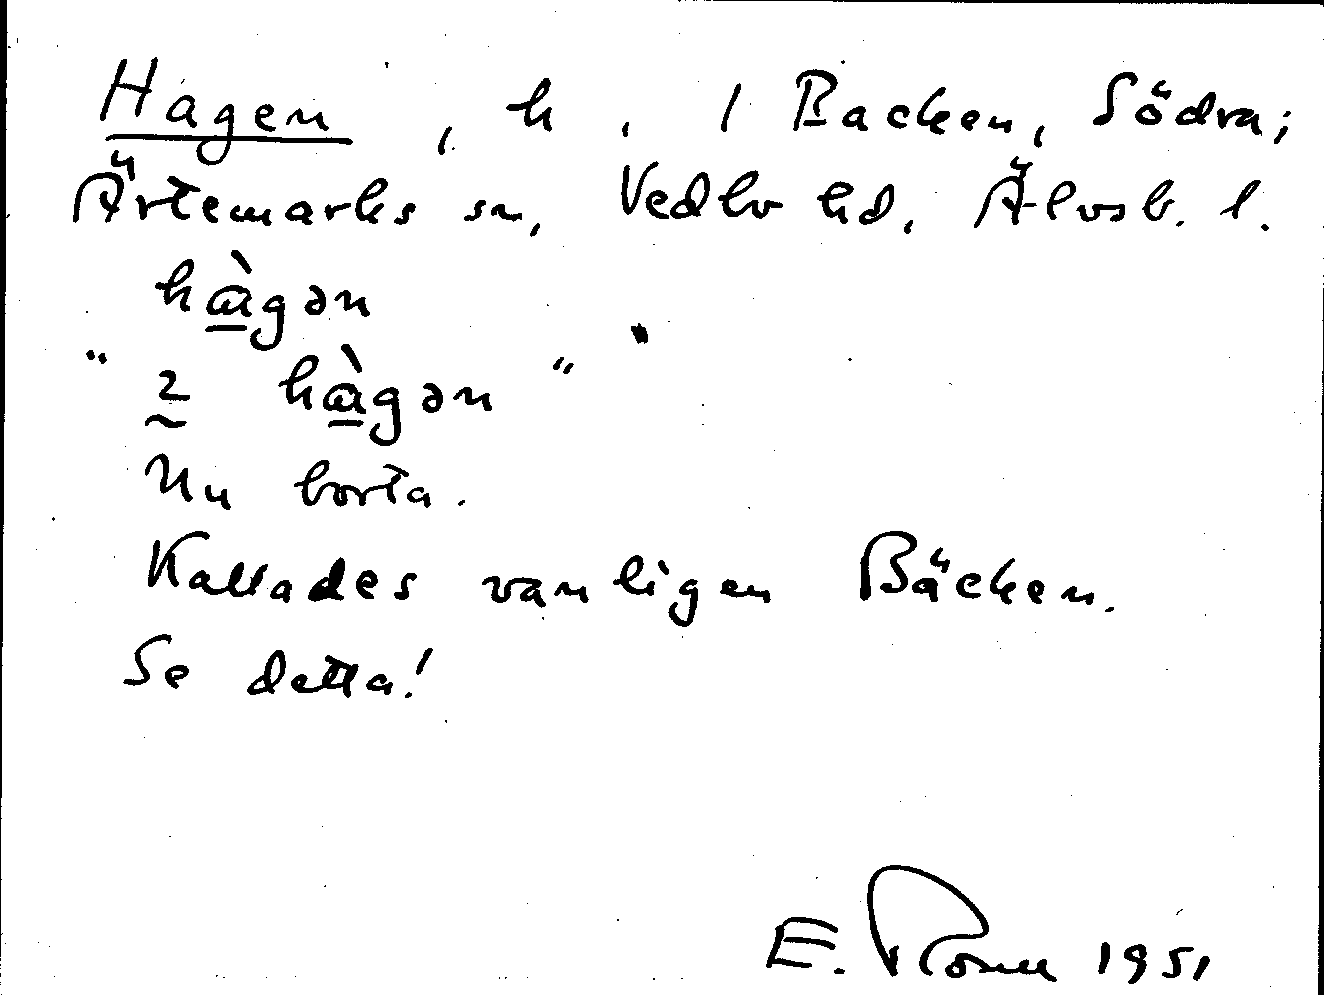 Hagen, h, 1 Backen, Södra;
Ärtemarks sn, Vedbo hd, Älvsb. l.
hàgən
"2 hàgən"
Nu borta.
Kallades vanligen Bäcken.
Se detta!
E. 1951